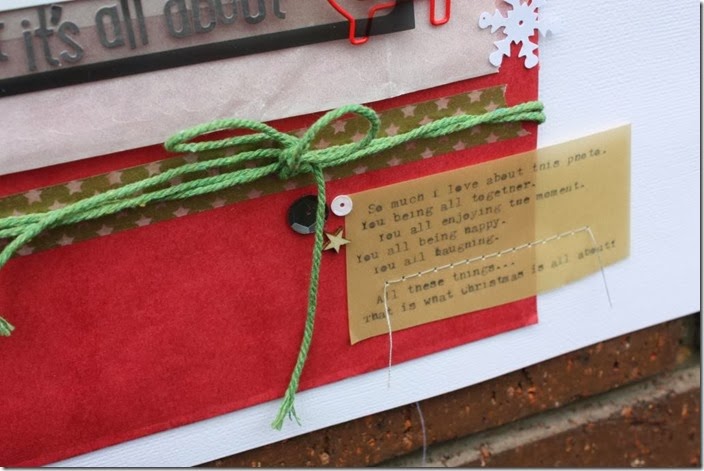 it's all about
So much i love about this photo.
You being all together.
You all enjoying the moment.
You all being happy.
You all laughing.
All these things...
That is what Christmas is all about!